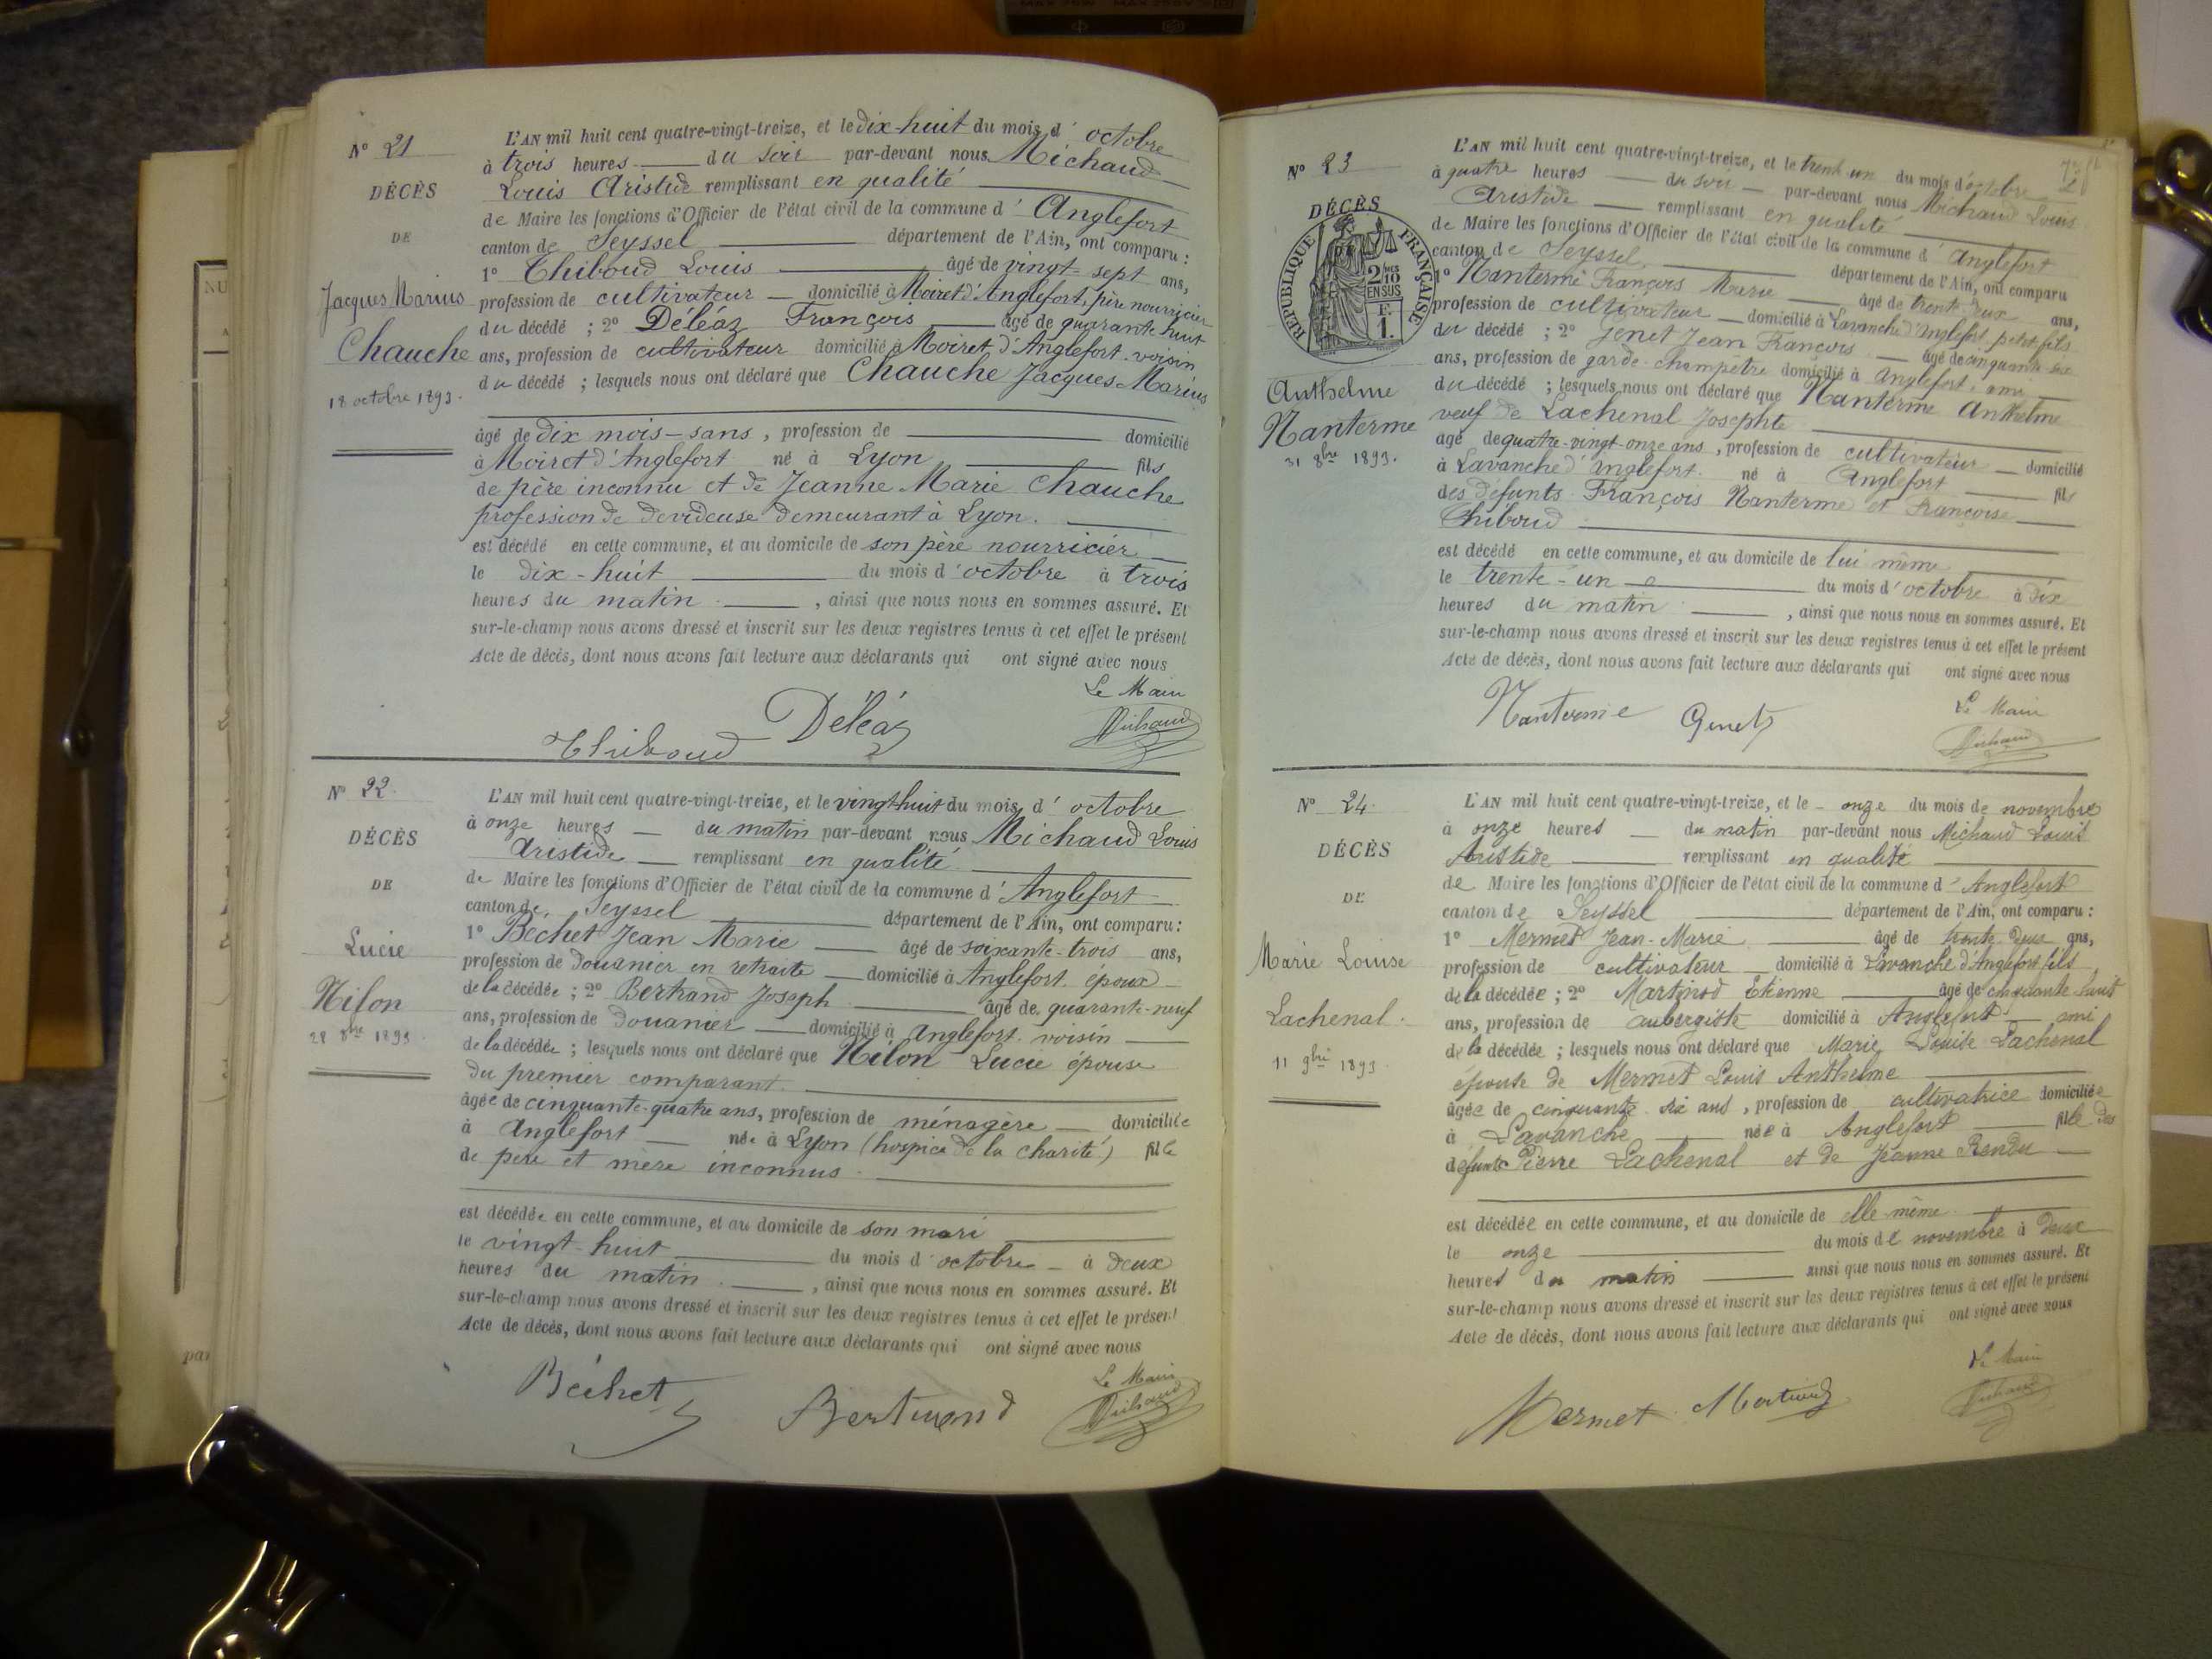 N° 21
DÉCÈS
DE
Jacques Marius
Chauche
18 octobre 1893.
L'AN mil huit cent quatre-vingt-treize, et le dix-huit du mois d' octobre
à trois heures du soir par-devant nous Michaud
Louis Aristide remplissant en qualité
de Maire les fonctions d'Officier de l'état civil de la commune d' Anglefort
canton de Seyssel département de l'Ain, ont comparu :
1° Thiboud Louis âgé de vingt-sept ans,
profession de cultivateur domicilié à Moiret d'Anglefort, père nourricier
du décédé ; 2° Déléaz François âgé de quarante huit
ans, profession de cultivateur domicilié à Moiret d'Anglefort voisin
du décédé ; lesquels nous ont déclaré que Chauche Jacques-Marius
âgé de dix mois - sans , profession de domicilié
à Moiret d'Anglefort né à Lyon fils
de père inconnu et de Jeanne Marie Chauche
profession de devideuse demeurant à Lyon.
est décédé en cette commune, et au domicile de son père nourricier
le dix-huit du mois d' octobre à trois
heures du matin , ainsi que nous nous en sommes assuré. Et
sur-le-champ nous avons dressé et inscrit sur les deux registres tenus à cet effet le présent
Acte de décès, dont nous avons fait lecture aux déclarants qui ont signé avec nous
Le Maire
Thiboud Déléaz Michaud
N° 22
DÉCÈS
DE
Lucie
Nilon
28 8bre 1893
L'AN mil huit cent quatre-vingt-treize, et le vingt-huit du mois d' octobre
à onze heures du matin par-devant nous Michaud Louis
Aristide remplissant en qualité
de Maire les fonctions d'Officier de l'état civil de la commune d' Anglefort
canton de Seyssel département de l'Ain, ont comparu :
1° Bechet Jean Marie âgé de soixante-trois ans,
profession de douanier en retraite domicilié à Anglefort époux
de la décédée ; 2° Bertrand Joseph âgé de quarante-neuf
ans, profession de douanier domicilié à Anglefort voisin
de la décédée ; lesquels nous ont déclaré que Nilon Lucie épouse
du premier comparant
âgée de cinquante-quatre ans, profession de ménagère domiciliée
à Anglefort née à Lyon (hospice de la charité) fille
de père et mère inconnus
est décédée en cette commune, et au domicile de son mari
le vingt-huit du mois d' octobre à deux
heures du matin , ainsi que nous nous en sommes assuré. Et
sur-le-champ nous avons dressé et inscrit sur les deux registres tenus à cet effet le présent
Acte de décès, dont nous avons fait lecture aux déclarants qui ont signé avec nous
Le Maire
Béchet Bertrand Michaud
N° 23
DÉCÈS
RÉPUBLIQUE FRANÇAISE
2/10
EN SUS
F.
1.
Anthelme
Nanterme
31 8bre 1893.
L'AN mil huit cent quatre-vingt-treize, et le trente un du mois d'octobre
à quatre heures du soir par-devant nous Michaud Louis
Aristide remplissant en qualité
de Maire les fonctions d'Officier de l'état civil de la commune d' Anglefort
canton de Seyssel département de l'Ain, ont comparu
1° Nanterme François Marie âgé de trente-deux ans,
profession de cultivateur domicilié à Lavanche d'Anglefort petit-fils
du décédé ; 2° Genet Jean François âgé de cinquante-six
ans, profession de garde-champêtre domicilié à Anglefort, ami
du décédé ; lesquels nous ont déclaré que Nanterme Anthelme
veuf de Lachenal Josephte
âgé de quatre-vingt-onze ans, profession de cultivateur domicilié
à Lavanche d'Anglefort né à Anglefort fils
des défunts François Nanterme et Françoise
Thiboud
est décédé en cette commune, et au domicile de lui même
le trente-un du mois d' octobre à dix
heures du matin , ainsi que nous nous en sommes assuré. Et
sur-le-champ nous avons dressé et inscrit sur les deux registres tenus à cet effet le présent
Acte de décès, dont nous avons fait lecture aux déclarants qui ont signé avec nous
Le Maire
Nanterme Genet Michaud
N° 24
DÉCÈS
DE
Marie Louise
Lachenal
11 9bre 1893
L'AN mil huit cent quatre-vingt-treize, et le onze du mois de novembre
à onze heures du matin par-devant nous Michaud Louis
Aristide remplissant en qualité
de Maire les fonctions d'Officier de l'état civil de la commune d' Anglefort
canton de Seyssel département de l'Ain, ont comparu :
1° Mermet Jean-Marie âgé de trente deux ans,
profession de cultivateur domicilié à Lavanche d'Anglefort fils
de la décédée ; 2° Martinod Etienne âgé de cinquante huit
ans, profession de aubergiste domicilié à Anglefort ami
de la décédée ; lesquels nous ont déclaré que Marie Louise Lachenal
épouse de Mermet Louis Anthelme
âgée de cinquante six ans, profession de cultivatrice domiciliée
à Lavanche née à Anglefort fille des
défunts Pierre Lachenal et de Jeanne Rendu
est décédée en cette commune, et au domicile de elle même
le onze du mois de novembre à deux
heures du matin ainsi que nous nous en sommes assuré. Et
sur-le-champ nous avons dressé et inscrit sur les deux registres tenus à cet effet le présent
Acte de décès, dont nous avons fait lecture aux déclarants qui ont signé avec nous
Le Maire
Mermet Martinod Michaud